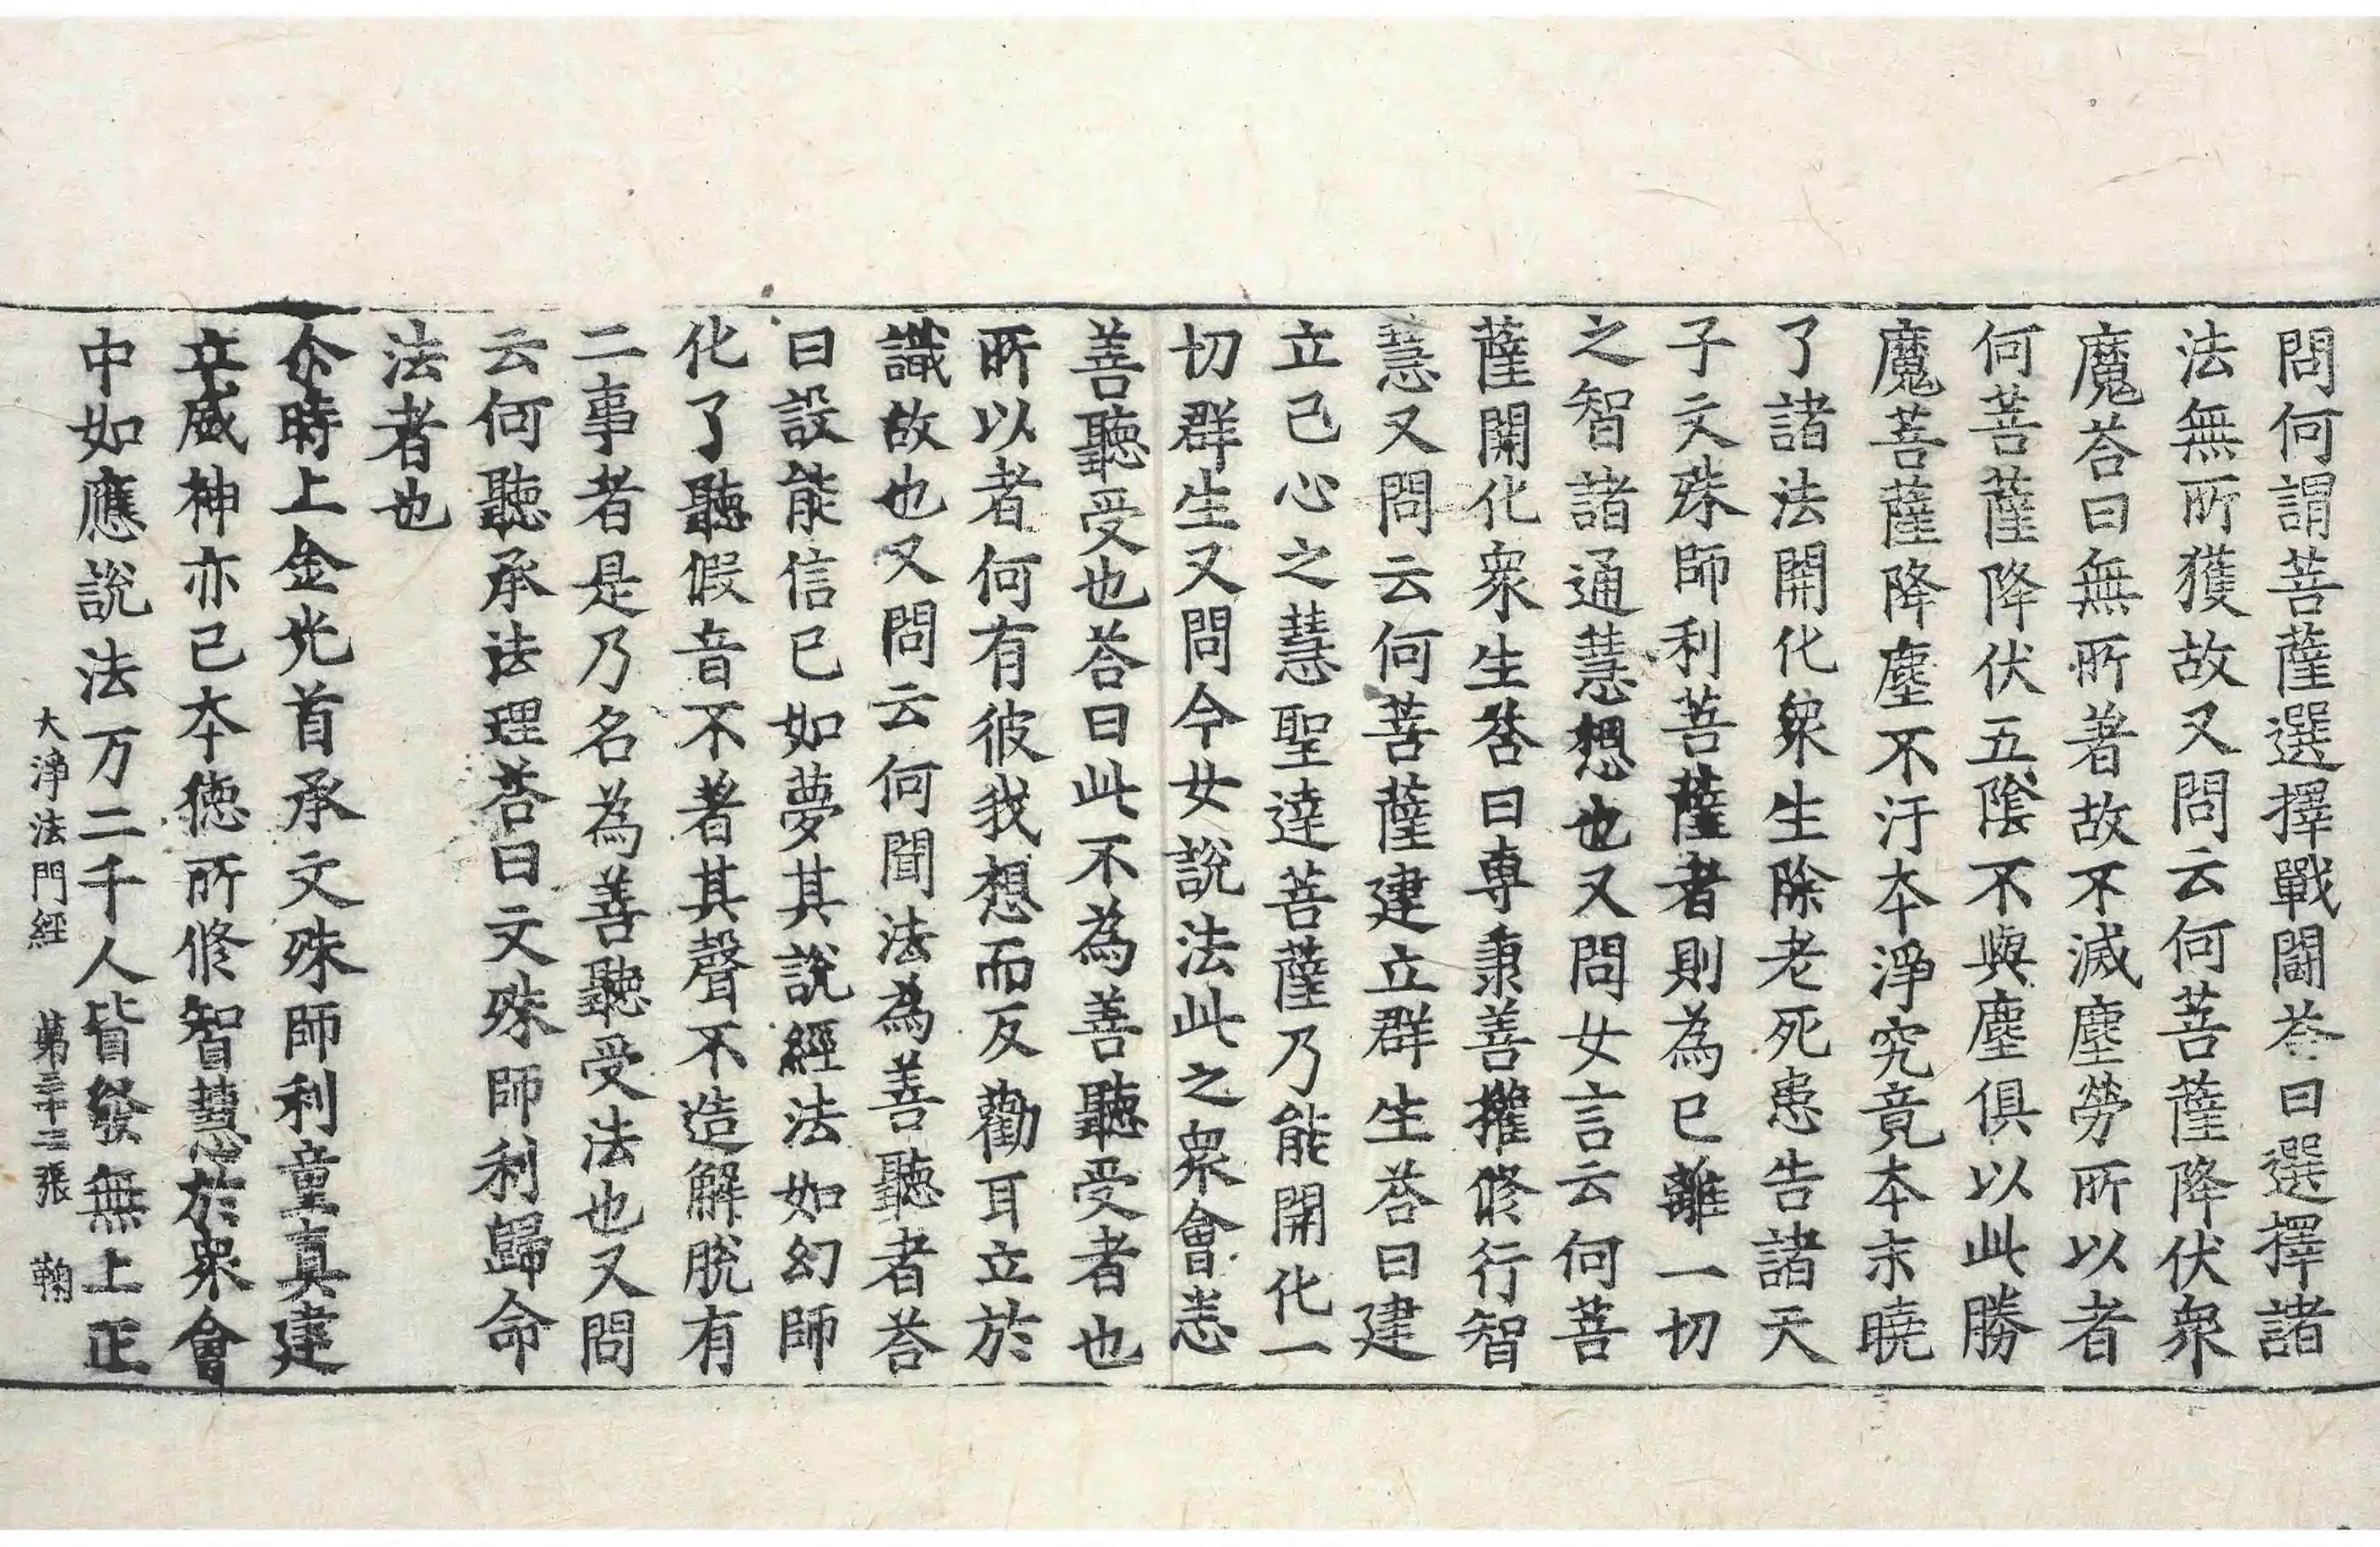 問何謂菩薩選擇戰鬪荅曰選擇諸
法無所獲故又問云何菩薩降伏衆
魔荅曰無所著故不滅塵勞所以者
何菩薩降伏五陰不與塵俱以此勝
魔菩薩降塵不汙本淨究竟本末曉
了諸法開化衆生除老死患告諸天
子文殊師利菩薩者則為已離一切
之智諸通慧想也又問女言云何菩
薩開化衆生荅曰專秉善權修行智
慧又問云何菩薩建立群生荅曰建
立己心之慧聖達菩薩乃能開化一
切群生又問今女說法此之衆會悉
善聽受也荅曰此不為善聽受者也
所以者何有彼我想而反勸耳立於
識故也又問云何聞法為善聽者荅
曰設能信已如夢其說經法如幻師
化了聽假音不著其聲不造解脫有
二事者是乃名為善聽受法也又問
云何聽承法理荅曰文殊師利歸命
法者也
尒時上金光首承文殊師利童真建
立威神亦已本德所修智慧於衆會
中如應說法万二千人皆發無上正
大淨法門經 第二十三張 鞠